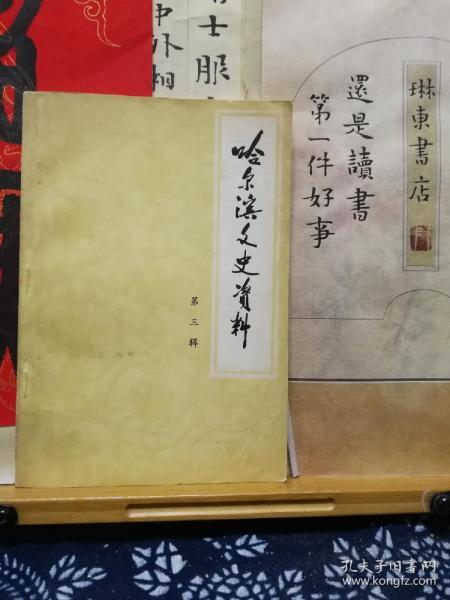 哈尔滨文史資料
第三辑
士服
中外相
還是讀書
第一件好事
琳東書店
孔夫子旧书网
www.kongfz.com